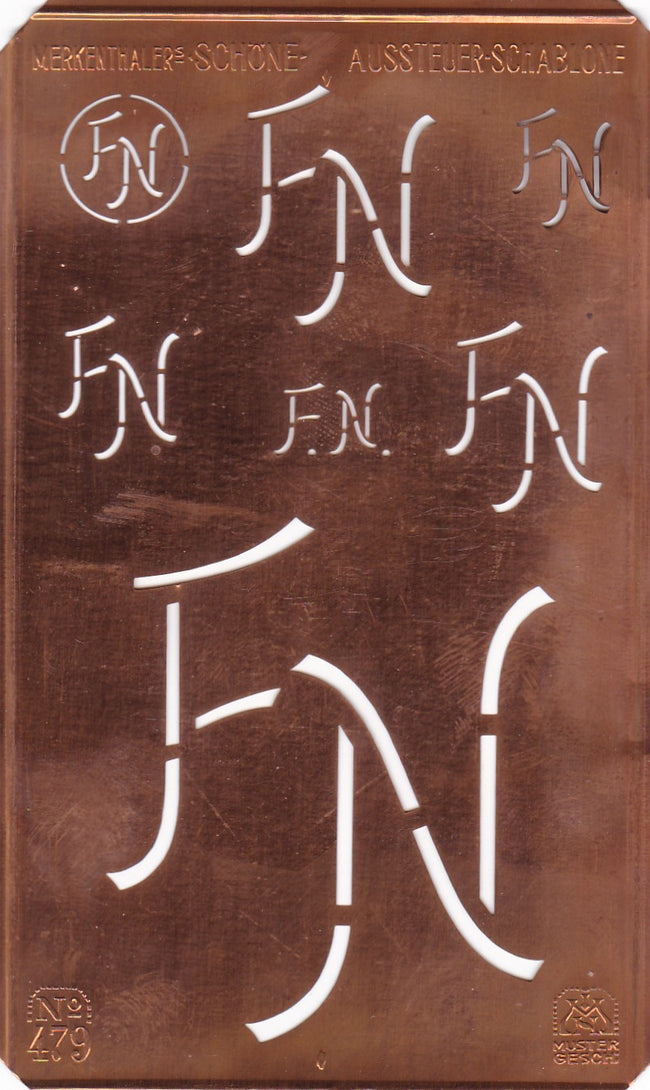 MERKENTHALERS "SCHÖNE" AUSSTEUER-SCHABLONE
FN FN FN
FN F.N. FN
FN
No
479
MUSTER
GESCH.